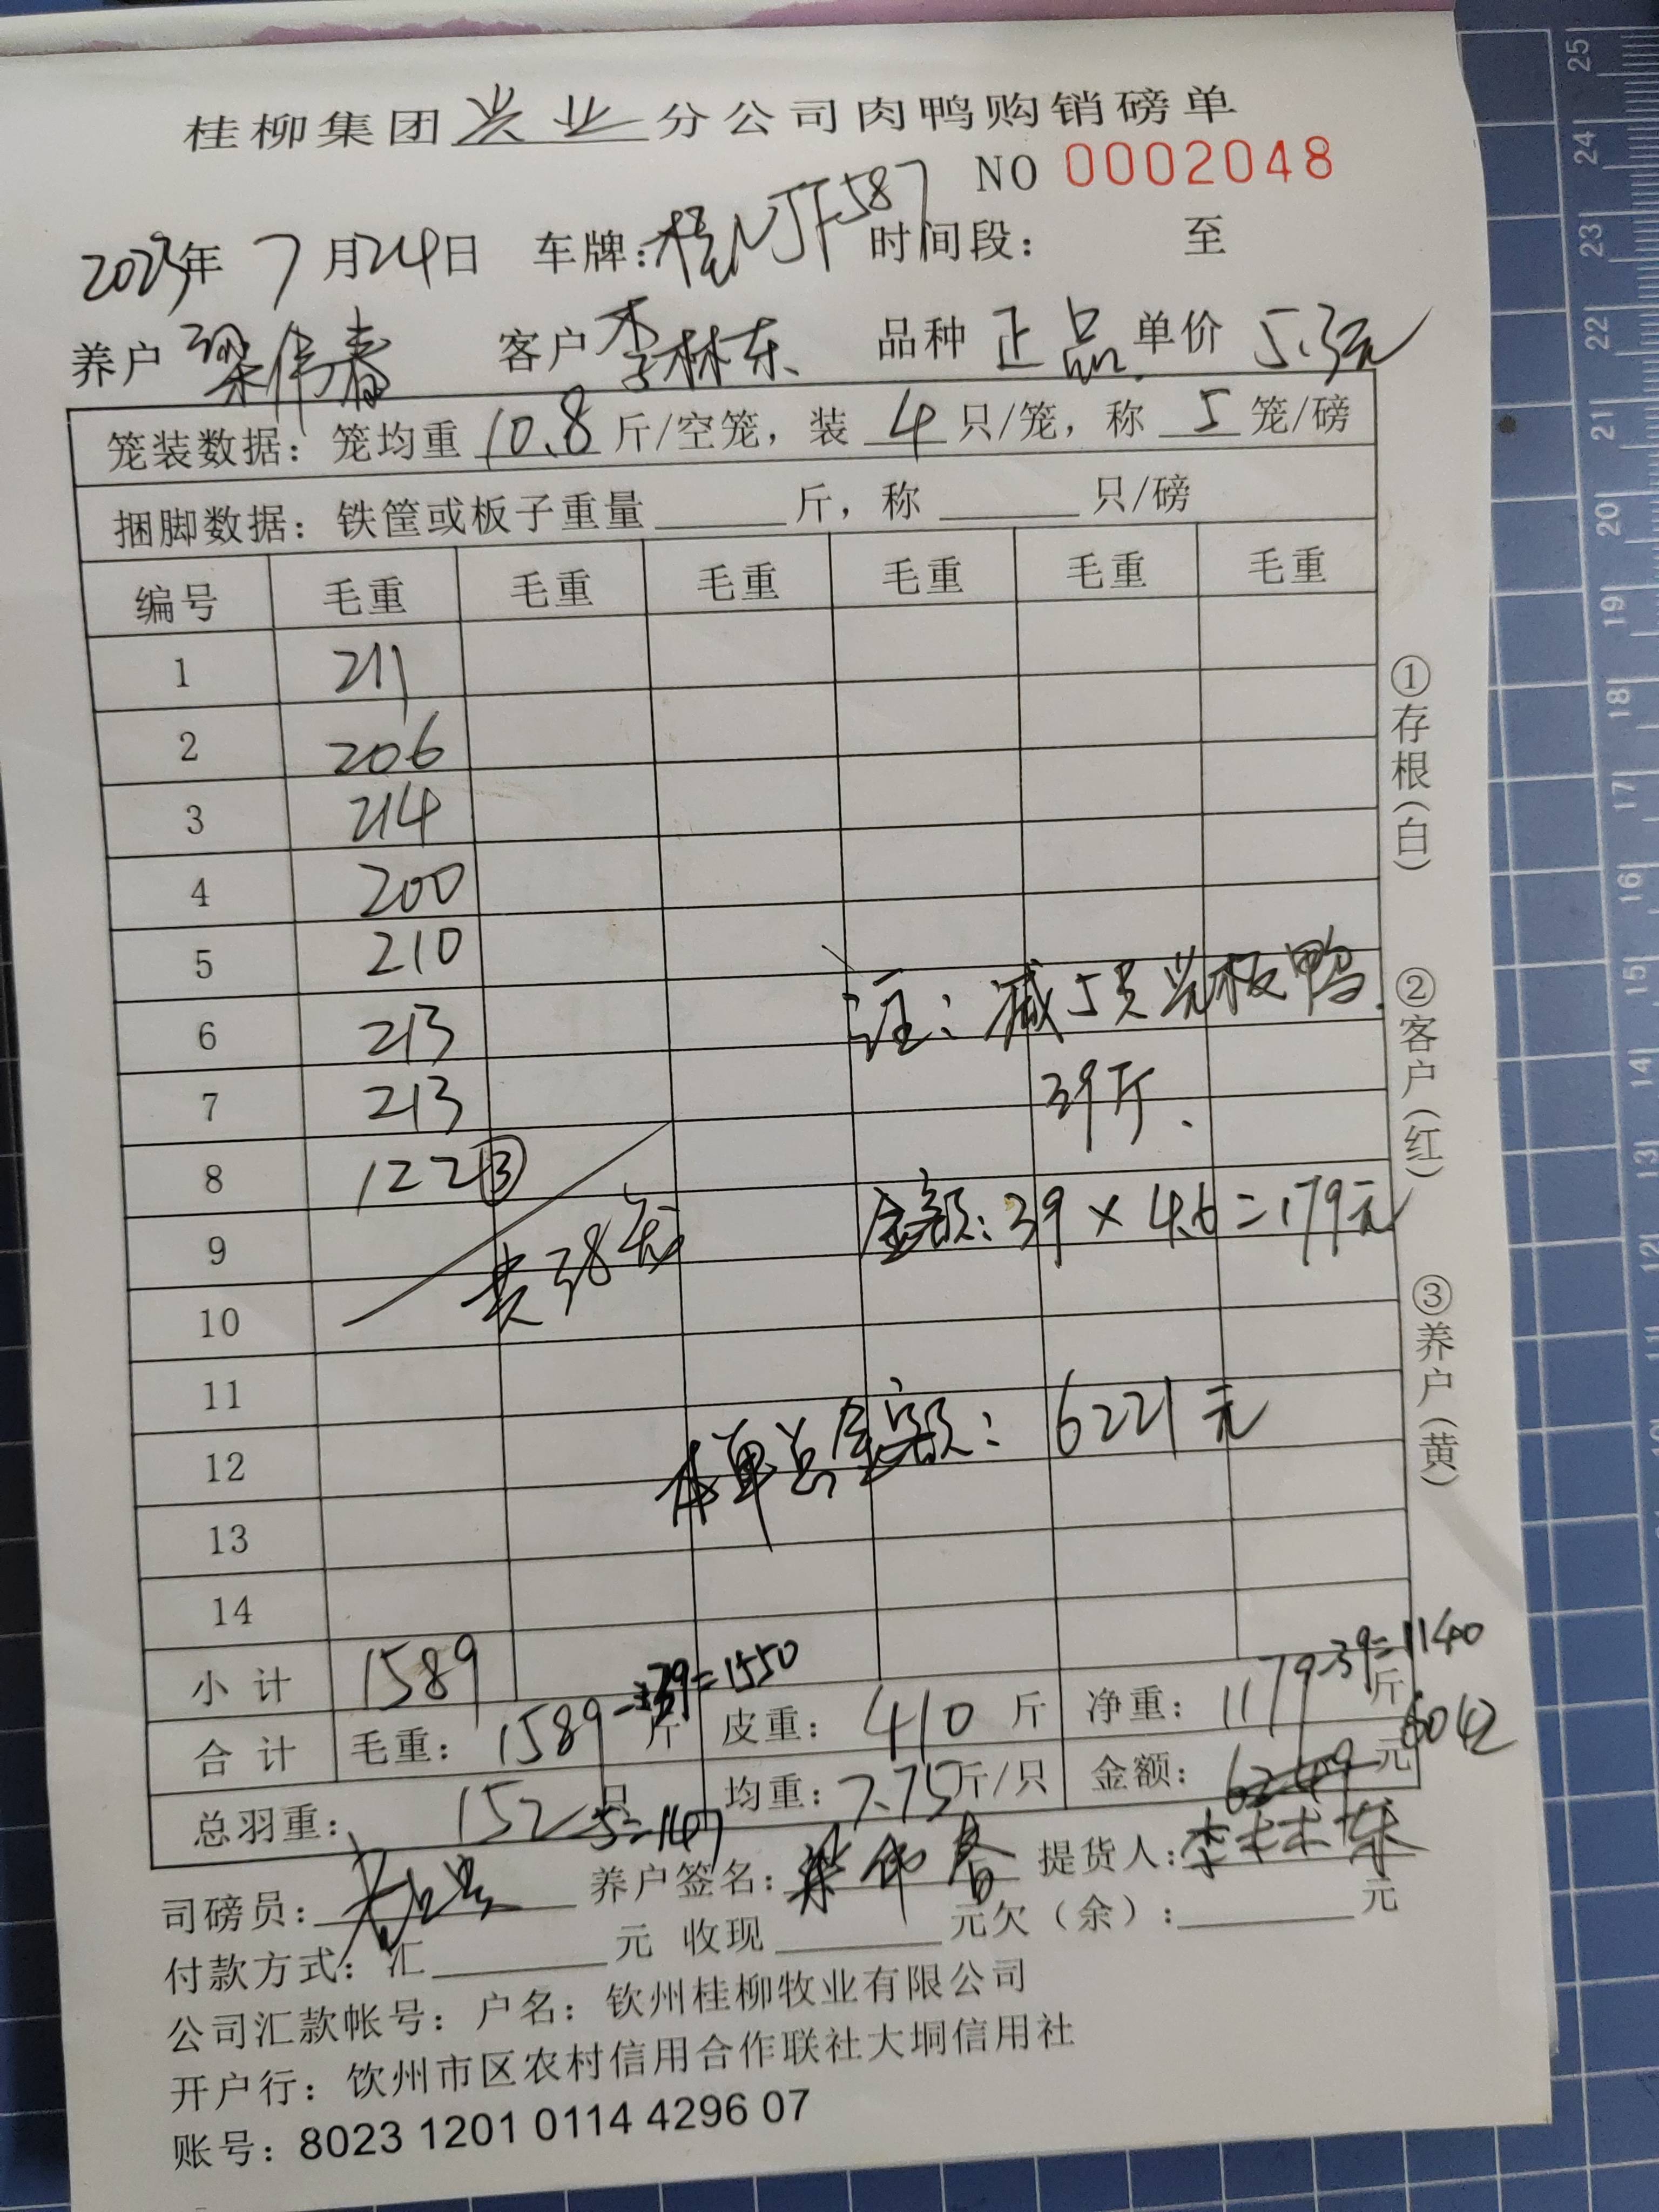 桂柳集团兴业分公司肉鸭购销磅单
NO 0002048
2023年 7月24日 车牌:桂NJF587 时间段: 至
养户 梁伟春 客户 李林东 品种 正品 单价 5.3元
笼装数据: 笼均重 10.8 斤/空笼, 装 4 只/笼, 称 5 笼/磅
捆脚数据: 铁筐或板子重量 斤, 称 只/磅
编号 毛重 毛重 毛重 毛重 毛重 毛重
1 211
2 206
3 214
4 200
5 210
6 213
7 213
8 122 ③
9
10
11
12
13
14
共38笼
注: 减5只光板鸭
39斤.
金额: 39 × 4.6 = 179元
本单总金额: 6221元
小计 1589
合计 毛重: 1589-39=1550 斤 皮重: 410 斤 净重: 1179-39=1140 斤
总羽重: 152 只 -5=147 均重: 7.75斤/只 金额: 6249 元 6042
司磅员: 养户签名: 梁伟春 提货人: 李林东
付款方式: 汇 元 收现 元欠(余): 元
公司汇款帐号: 户名: 钦州桂柳牧业有限公司
开户行: 钦州市区农村信用合作联社大垌信用社
账号: 8023 1201 0114 4296 07
①存根(白)
②客户(红)
③养户(黄)
25
24
23
22
21
20
19
18
17
16
15
14
13
12
11